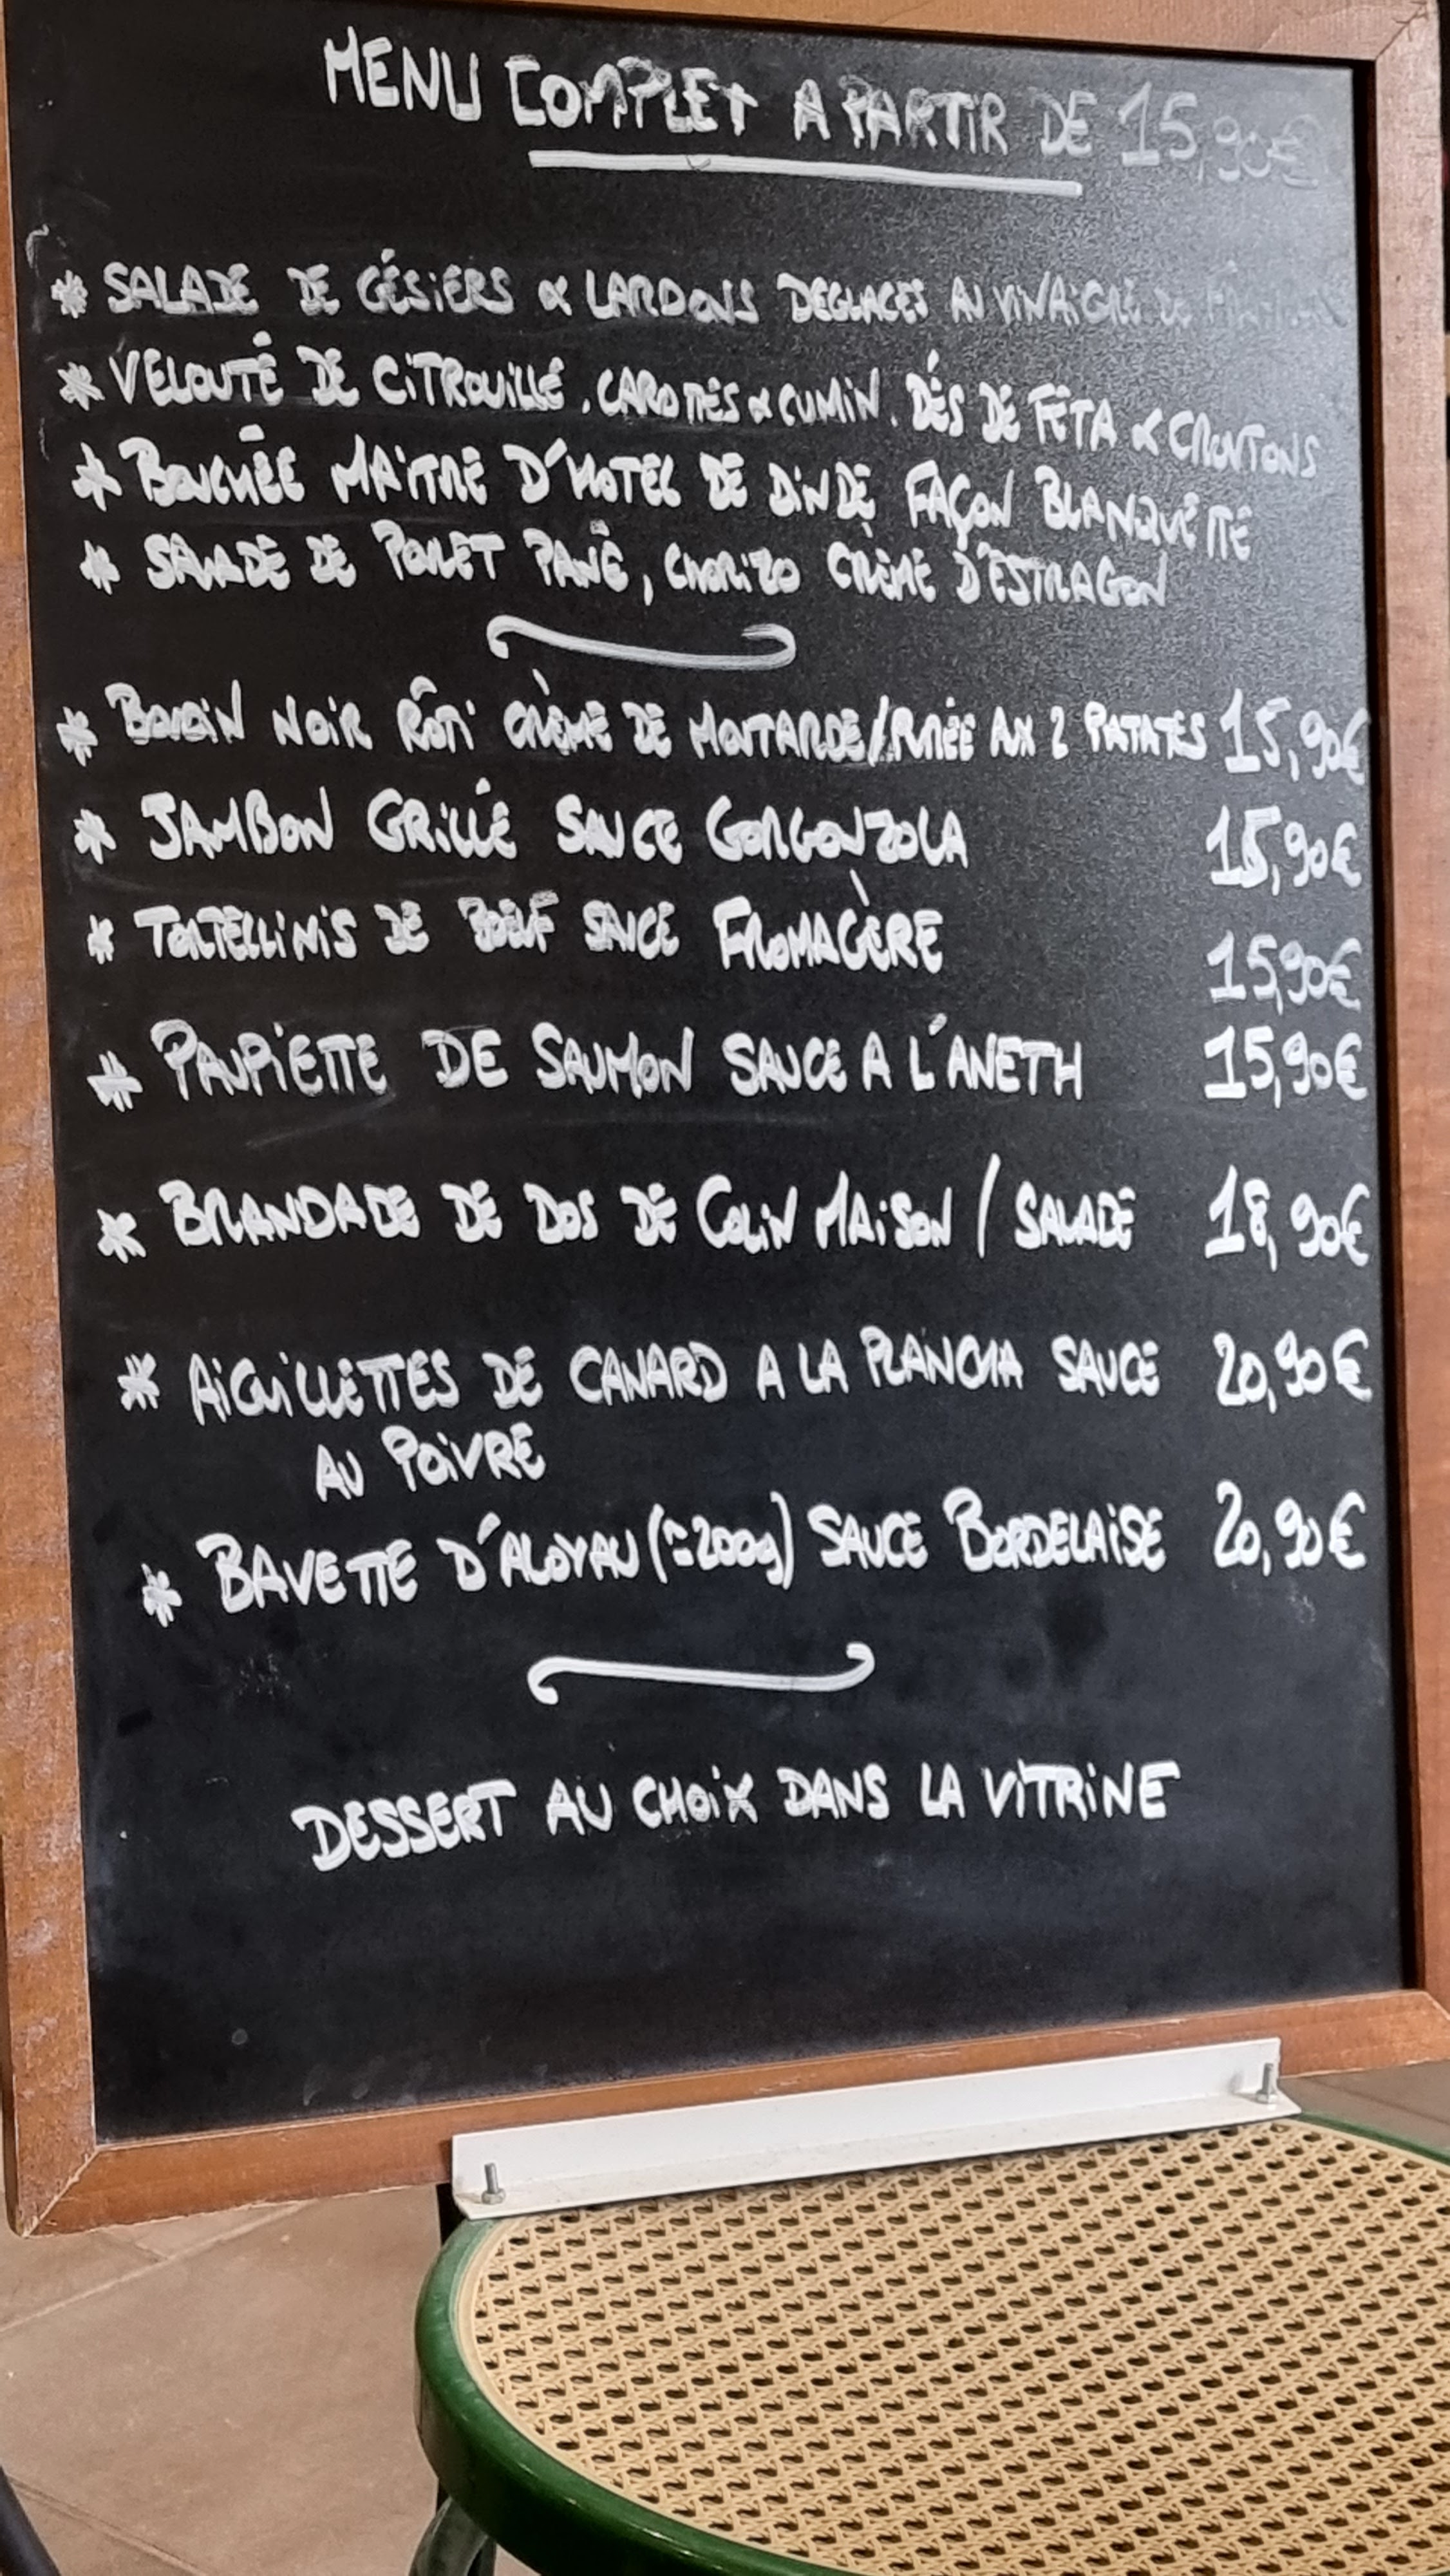 MENU COMPLET A PARTIR DE 15,90€
* SALADE DE GÉSIERS & LARDONS DEGLACES AU VINAIGRE DE
* VELOUTÉ DE CITROUILLE, CAROTTES & CUMIN, DÉS DE FETA & CROUTONS
* BOUCHÉE MAITRE D'HOTEL DE DINDE FAÇON BLANQUETTE
* SALADE DE POULET PANÉ, CHORIZO CRÈME D'ESTRAGON
* BOUDIN NOIR RÔTI CRÈME DE MOUTARDE/PURÉE AUX 2 PATATES 15,90€
* JAMBON GRILLÉ SAUCE GORGONZOLA 15,90€
* TORTELLINIS DE BŒUF SAUCE FROMAGÈRE 15,90€
* PAUPIETTE DE SAUMON SAUCE A L'ANETH 15,90€
* BRANDADE DE DOS DE COLIN MAISON / SALADE 18,90€
* AIGUILLETTES DE CANARD A LA PLANCHA SAUCE 20,90€
AU POIVRE
* BAVETTE D'ALOYAU (≃200g) SAUCE BORDELAISE 20,90€
DESSERT AU CHOIX DANS LA VITRINE